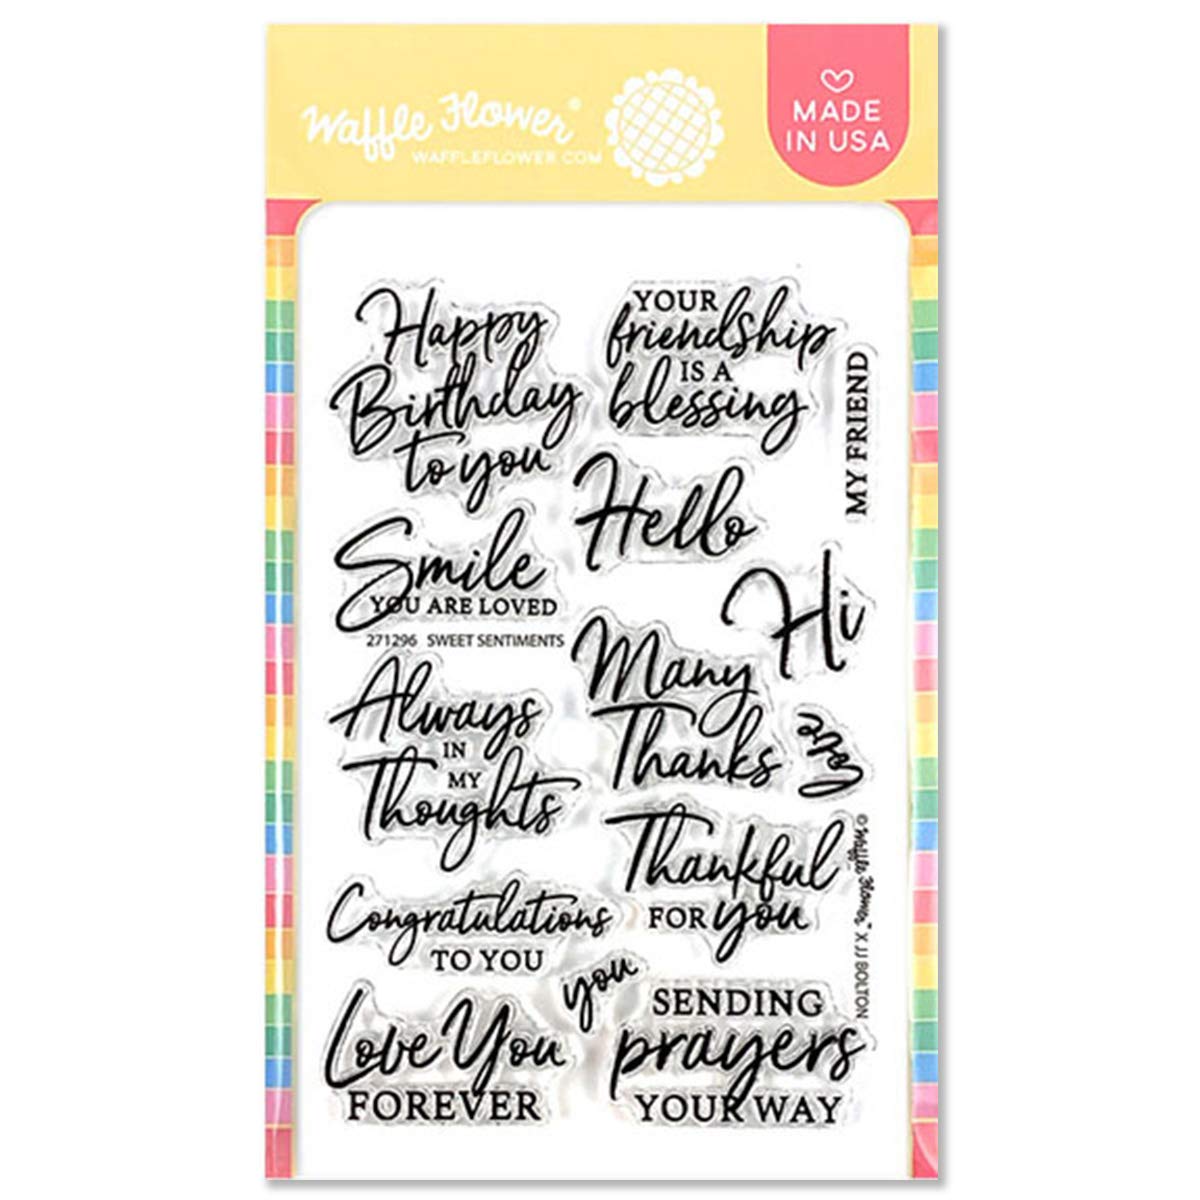 Waffle Flower®
WAFFLEFLOWER.COM
MADE
IN USA
Happy
Birthday
to you
YOUR
friendship
IS A
blessing
MY FRIEND
Hello
Smile
YOU ARE LOVED
271296 SWEET SENTIMENTS
Hi
Many
Thanks
Love
Always
IN
MY
Thoughts
Thankful
FOR you
© Waffle Flower™ X JJ BOLTON
Congratulations
TO YOU
you
Love You
FOREVER
SENDING
prayers
YOUR WAY